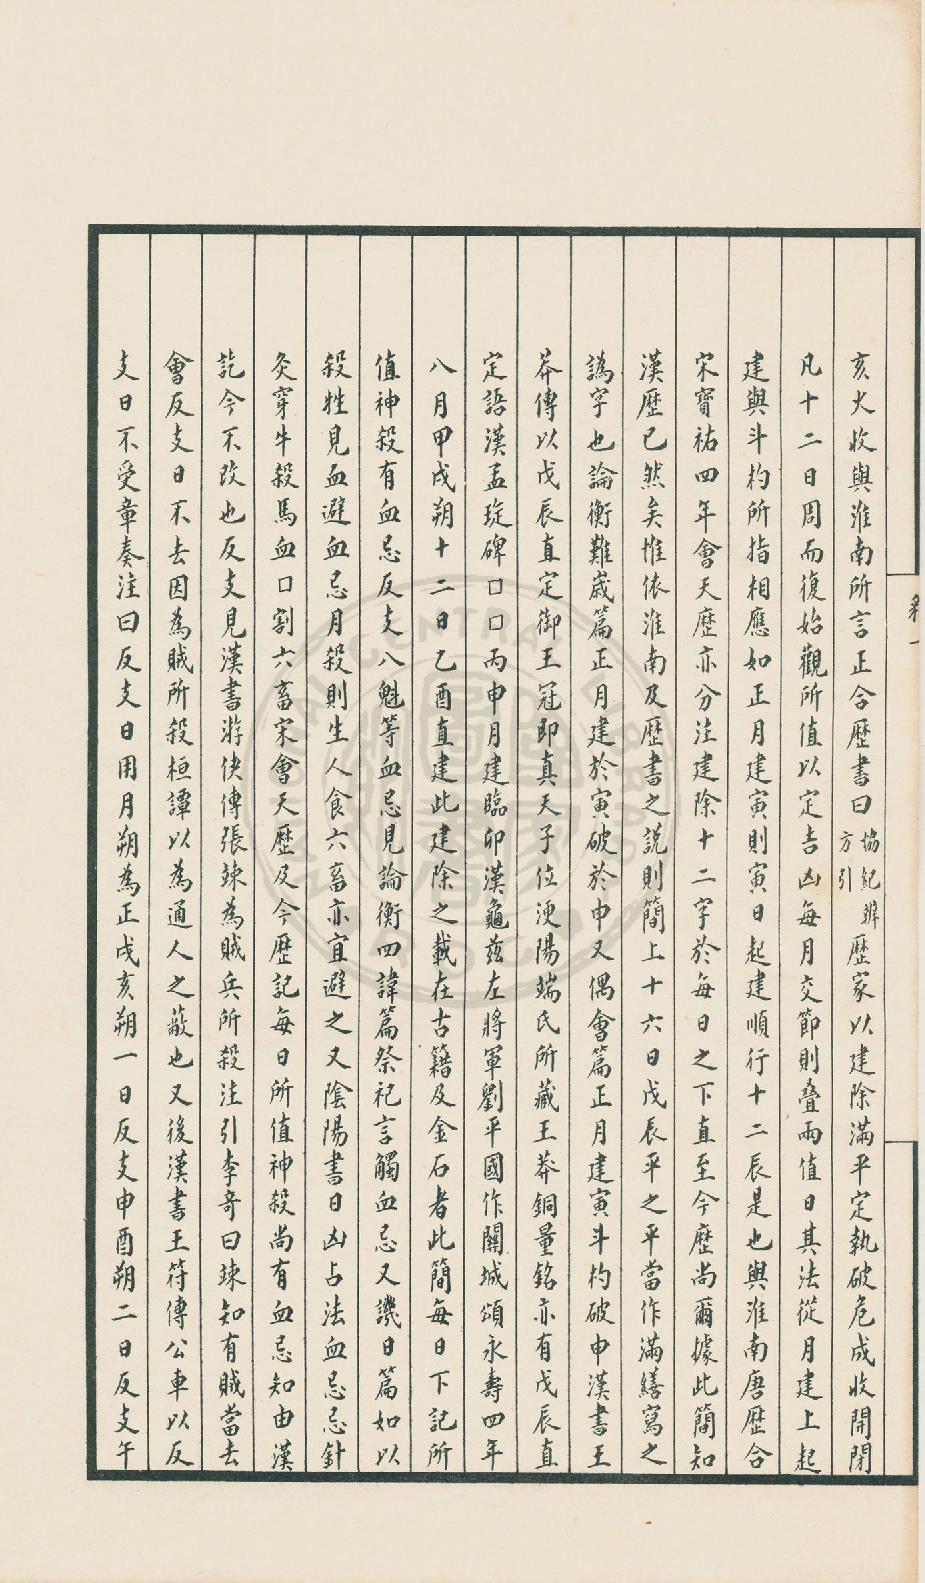 亥火收與淮南所言正合歷書曰協紀辨方引歷家以建除滿平定執破危成收開閉
凡十二日周而復始觀所值以定吉凶每月交節則疊兩值日其法從月建上起
建與斗杓所指相應如正月建寅則寅日起建順行十二辰是也與淮南唐歷合
宋寶祐四年會天歷亦分注建除十二字於每日之下直至今歷尚爾據此簡知
漢歷已然矣惟依淮南及歷書之說則簡上十六日戊辰平之平當作滿繕寫之
譌字也論衡難歲篇正月建於寅破於申又偶會篇正月建寅斗杓破申漢書王
莽傳以戊辰直定御王冠即真天子位浭陽端氏所藏王莽銅量銘亦有戊辰直
定語漢孟琁碑口口丙申月建臨卯漢龜茲左將軍劉平國作關城頌永壽四年
八月甲戌朔十二日乙酉直建此建除之載在古籍及金石者此簡每日下記所
值神殺有血忌反支八魁等血忌見論衡四諱篇祭祀言觸血忌又譏日篇如以
殺牲見血避血忌月殺則生人食六畜亦宜避之又陰陽書日凶占法血忌忌針
灸穿牛殺馬血口割六畜宋會天歷及今歷記每日所值神殺尚有血忌知由漢
訖今不改也反支見漢書游俠傳張竦為賊兵所殺注引李奇曰竦知有賊當去
會反支日不去因為賊所殺桓譚以為通人之蔽也又後漢書王符傳公車以反
支日不受章奏注曰反支日用月朔為正戌亥朔一日反支申酉朔二日反支午